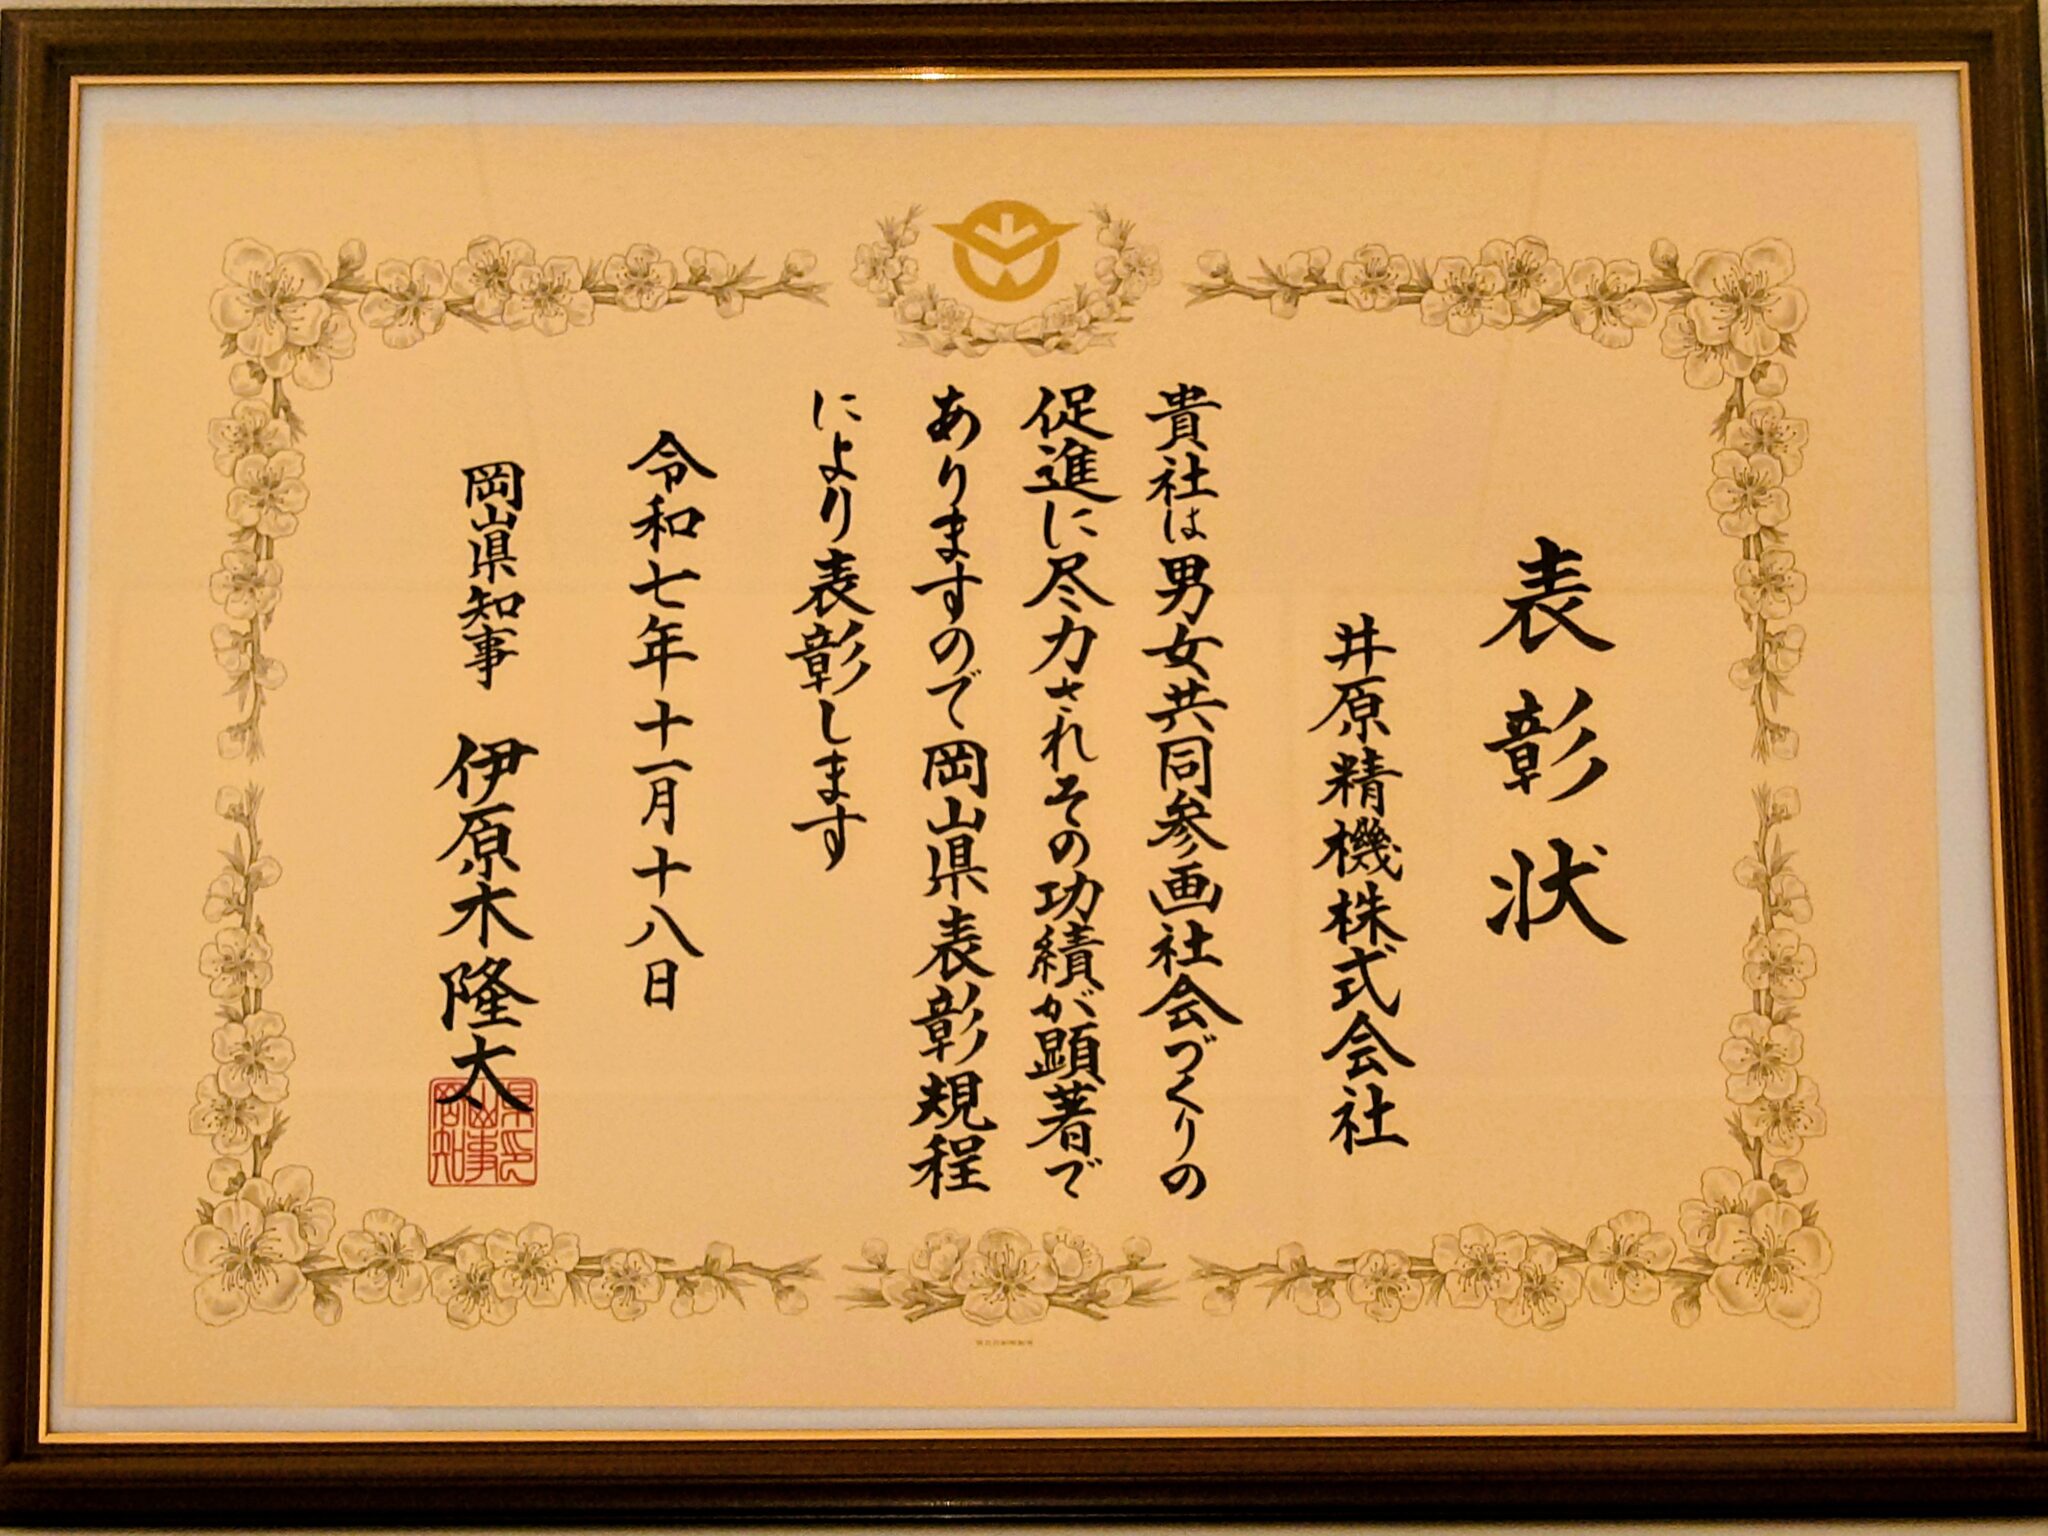 表彰状
井原精機株式会社
貴社は男女共同参画社会づくりの
促進に尽力されその功績が顕著で
ありますので岡山県表彰規程
により表彰します
令和七年十一月十八日
岡山県知事 伊原木隆太
岡山県知事印